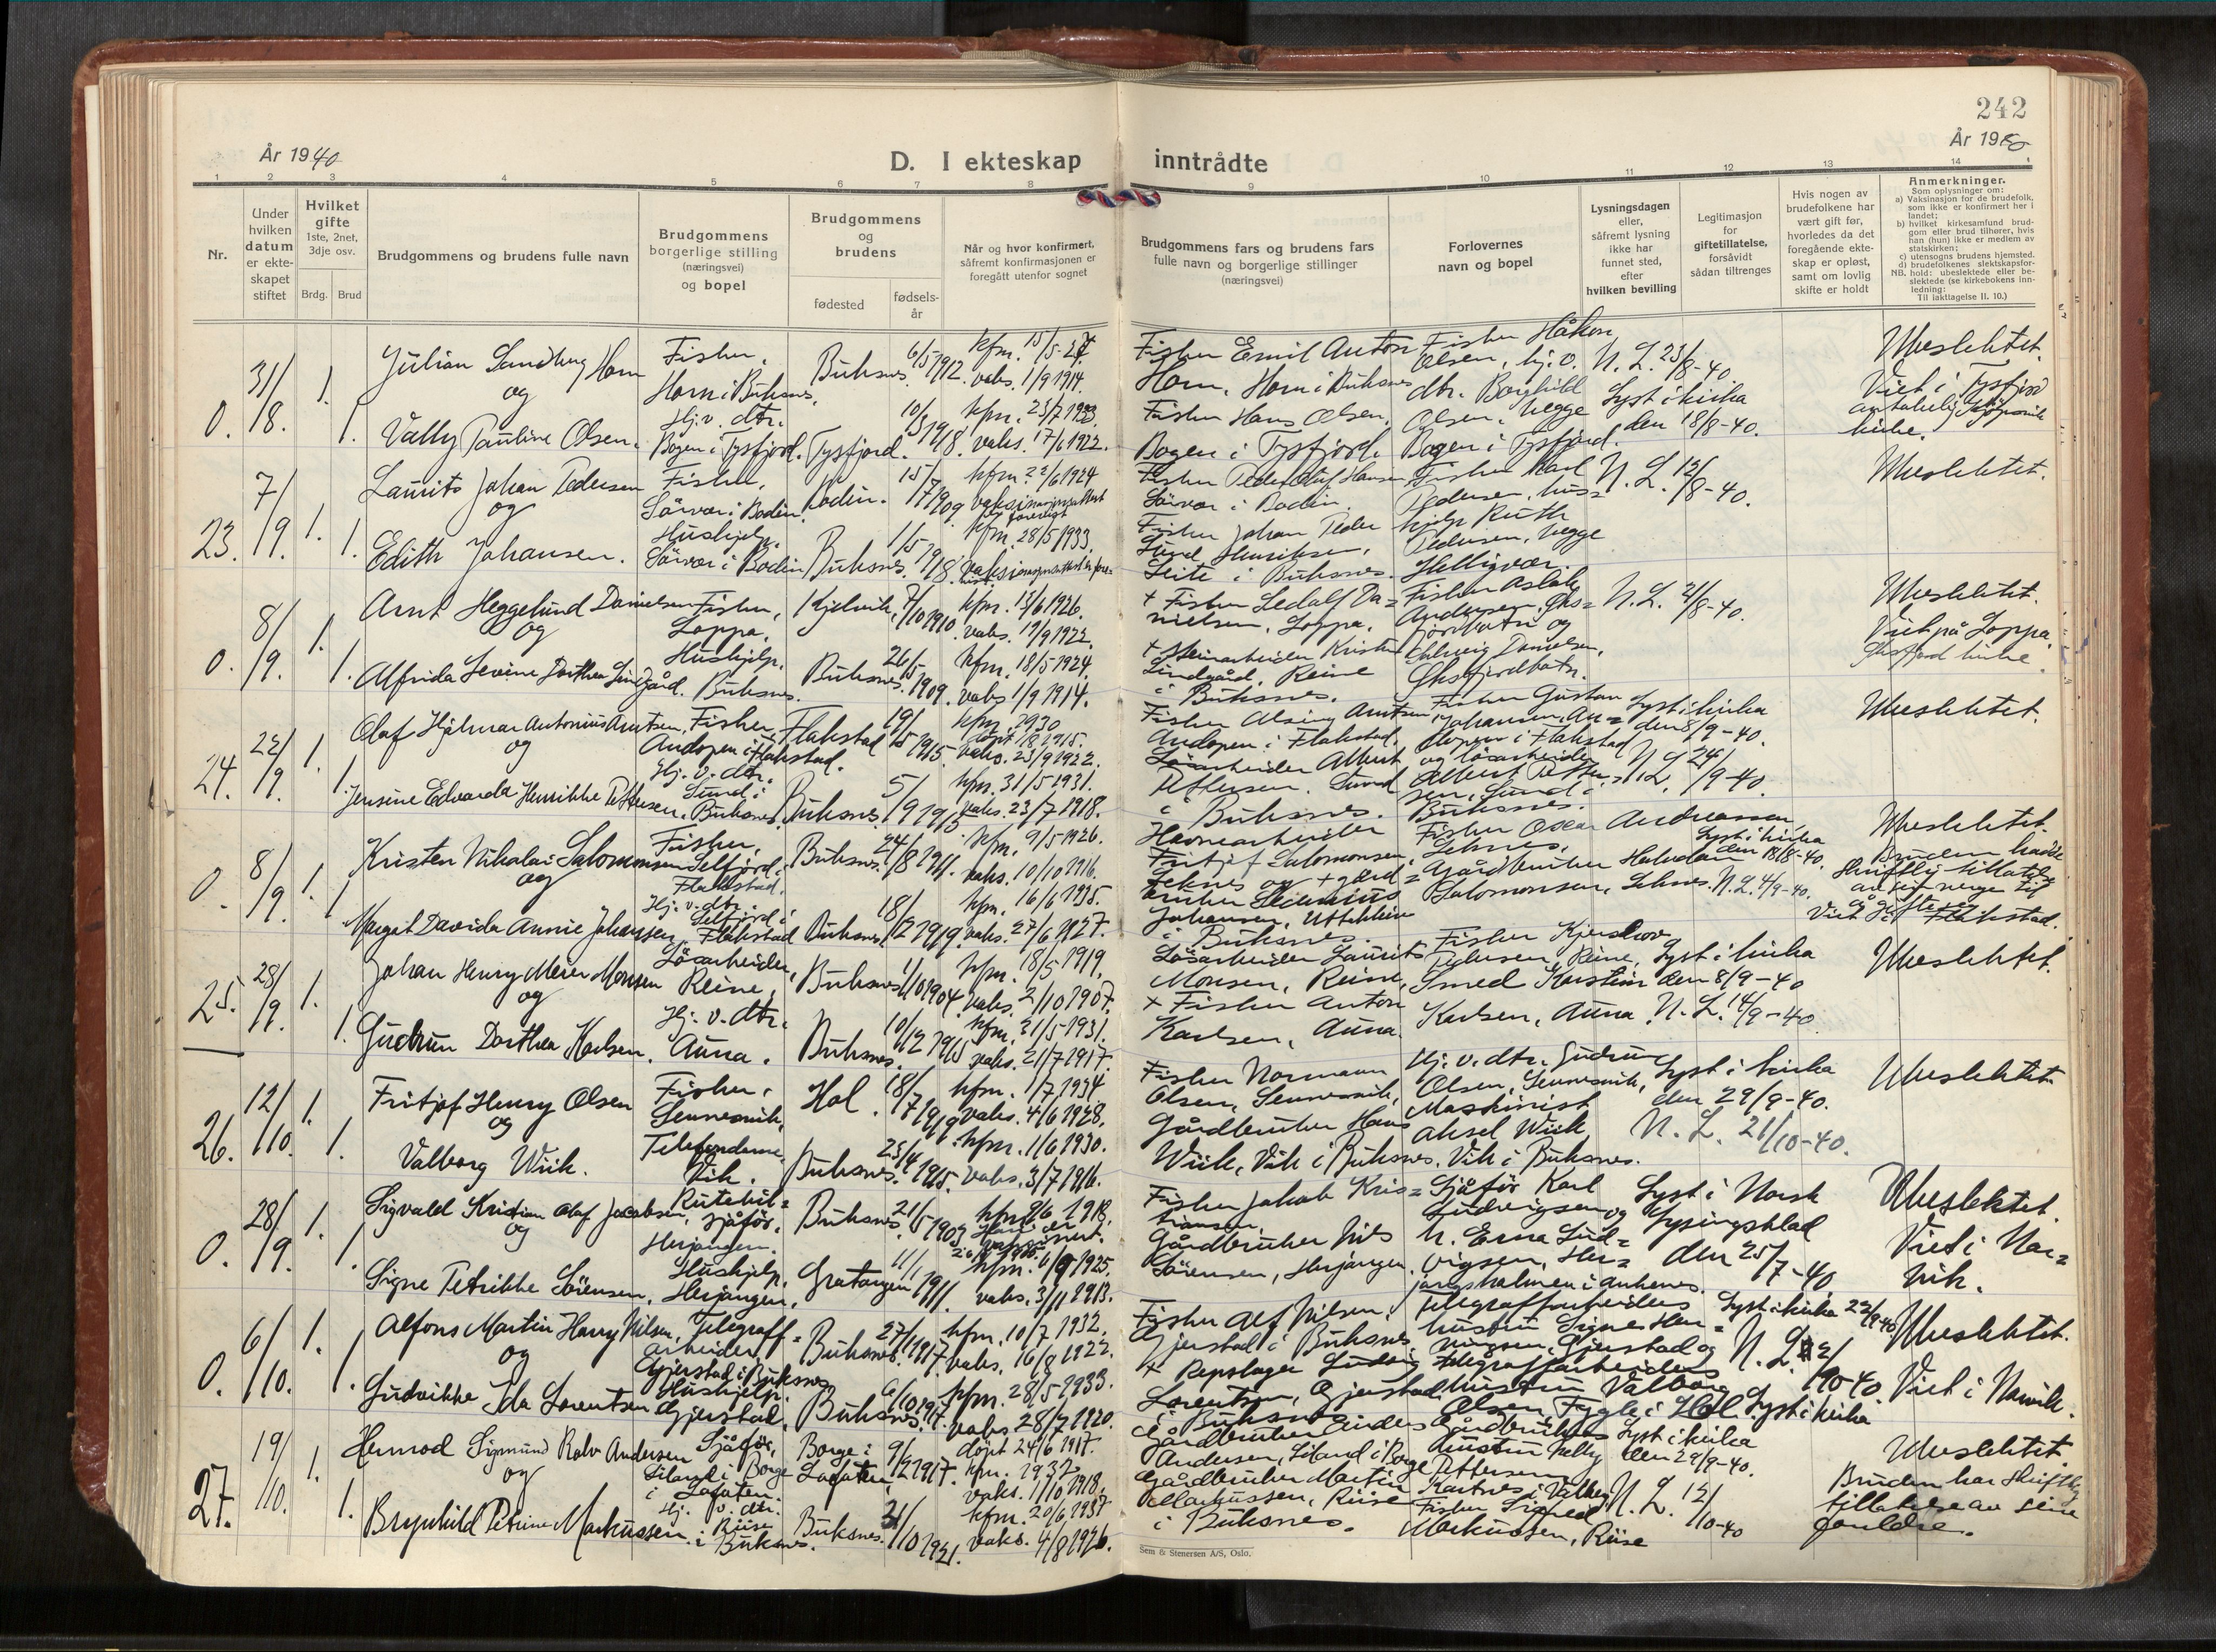 242
År 1940
År 1940
D. I ekteskap inntrådte
1 2 3 4 5 6 7 8 9 10 11 12 13 14
Nr.
Under hvilken datum er ekteskapet stiftet
Hvilket gifte 1ste, 2net, 3dje osv.
Brdg. Brud
Brudgommens og brudens fulle navn
Brudgommens borgerlige stilling (næringsvei) og bopel
Brudgommens og brudens
fødested fødselsår
Når og hvor konfirmert, såfremt konfirmasjonen er foregått utenfor sognet
Brudgommens fars og brudens fars fulle navn og borgerlige stillinger (næringsvei)
Forlovernes navn og bopel
Lysningsdagen eller, såfremt lysning ikke har funnet sted, efter hvilken bevilling
Legitimasjon for giftetillatelse, forsåvidt sådan tiltrenges
Hvis nogen av brudefolkene har vært gift før, hvorledes da det foregående ekteskap er opløst, samt om lovlig skifte er holdt
Anmerkninger.
Som oplysninger om:
a) Vaksinasjon for de brudefolk, som ikke er konfirmert her i landet;
b) hvilket kirkesamfund brudgom eller brud tilhører, hvis han (hun) ikke er medlem av statskirken;
c) utensogns brudens hjemsted.
d) brudefolkenes slektskapsforhold: ubeslektede eller beslektede (se kirkebokens innledning:
NB.
Til iakttagelse II. 10.)
0. 31/8. 1. 1.
Julian Sandberg Horn
og
Vally Pauline Olsen.
Fisker.
Horn i Buksnes.
Hj. v. dtr.
Bogen i Tysfjord.
Buksnes. 6/5 1912.
Tysfjord.
kfm. 15/5-27
vaks. 1/9 1914.
vaks. 17/6 1922.
Fisker Emil Anton
Horn, Horn i Buksnes
Fisker Hans Olsen,
Bogen i Tysfjord.
Fisker Håkon
Olsen, hj. v.
dtr. Borghild
Olsen, begge
Bogen i Tysfjord.
N. L. 23/8-40
Lyst i kirka
den 18/8-40.
Ubeslektet.
Viet i Tysfjord
kirke.
23. 7/9. 1. 1.
Laurits Johan Pedersen
og
Edith Johansen.
Fisker,
Sörvær i Bodin.
Hushjelp.
Sörvær i Bodin
Bodin. 15/7 1909
Buksnes. 1/5 1918.
kfm. 22/6 1924
kfm. 28/5 1933.
Fisker Peder Oluf Hansen
Sörvær i Bodin
Fisker Johan Peder
Henriksen,
i Buksnes.
Fisker Karl
Pedersen, hus=
hjelp Ruth
Pedersen, begge
Helligvær.
N. L. 12/8-40.
Ubeslektet.
0. 8/9. 1. 1.
Arnt Heggelund Danielsen
og
Alfrida Levine Dorthea Lindgård.
Fisker,
Loppa.
Hushjelp,
Buksnes.
Kjelvik, 7/10 1910
Buksnes. 26/5 1909.
kfm. 13/6 1926.
vaks. 19/9 1922.
kfm. 18/5 1924.
vaks. 1/9 1914.
+ Fisker Ledolf Da=
nielsen, Loppa.
Lindgård, Reine
i Buksnes.
Fisker Aslak
Andersen, Øks=
fjordbotn og
Danielsen,
Øksfjordbotn.
N. L. 21/8-40.
Ubeslektet.
Viet på Loppa,
Øksfjord kirke.
24. 22/9. 1. 1.
Olaf Hjalmar Antonius Arntsen,
og
Jensine Edvarda Henrikke Pettersen,
Fisker,
Andopen i Flakstad.
Hj. v. dtr.
Sund i
Buksnes.
Flakstad 1915.
Buksnes.
kfm. 1930
vaks. 23/9 1922.
kfm. 31/5 1931.
vaks. 23/7 1918.
Andopen i Flakstad.
Lösarbeider Albert
Pettersen, Sund
i Buksnes.
Fisker Gustav
Johansen, An=
dopen i Flakstad
og lösarbeider
Albert Petter=
sen, Sund i
Buksnes.
Lyst i kirka
den 8/9-40.
N. L. 24/9-40.
Ubeslektet.
0. 8/9. 1. 1
Kristen Nikolai Salomonsen
og
Margit Davida Annie Johansen
Fisker,
Selfjord i
Flakstad.
Hj. v. dtr.
Selfjord i
Flakstad
Buksnes. 24/8 1911.
Buksnes. 18/2 1919.
kfm. 9/5 1926.
vaks. 10/10 1916.
kfm. 16/6 1935.
vaks. 27/6 1927.
Havnearbeider
Fritjof Salomonsen,
Leknes og + gård=
bruker
Johansen, Uttakleiv
i Buksnes.
Fisker Oscar Andreassen
Leknes,
Gårdbruker Halvdan
Salomonsen, Leknes.
Lyst i kirka
den 18/8-40.
N. L. 4/9-40.
Ubeslektet.
Bruden hadde
skriftlig tillatelse
av sin verge til
å gifte seg.
Viet i Flakstad.
25. 28/9. 1. 1.
Johan Henry Meier Monsen
og
Gudrun Dorthea Karlsen.
Lösarbeider,
Reine,
Hj. v. dtr.
Auna.
Buksnes 1/10 1904.
Buksnes. 10/12 1915
kfm. 18/5 1919.
vaks. 2/10 1907.
kfm. 31/5 1931.
vaks. 21/7 1917.
Lösarbeider Laurits
Monsen, Reine,
+ Fisker Anton
Karlsen, Auna.
Fisker
Pedersen, Reine,
Smed Karstein
Karlsen, Auna.
Lyst i kirka
den 8/9-40
N. L. 14/9-40.
Ubeslektet.
26. 12/10. 1. 1.
Fritjof Henry Olsen
og
Valborg Wiik.
Fisker,
Sennesvik,
Telefondame,
Vik.
Hol. 18/7 1919
Buksnes. 23/4 1915.
kfm. 1/7 1934
vaks. 4/6 1928.
kfm. 1/6 1930.
vaks. 3/7 1916.
Fisker Normann
Olsen, Sennesvik,
Gårdbruker Hans
Wiik, Vik i Buksnes.
Hj. v. dtr. Gudrun
Olsen, Sennesvik,
Maskinist
Aksel Wiik
Vik i Buksnes.
Lyst i kirka
den 29/9-40.
N. L. 21/10-40.
Ubeslektet.
0. 28/9. 1. 1.
Sigvald Kristian Olaf Jacobsen,
og
Signe Petrikke Sörensen,
Rutebil=
sjåför.
Herjangen.
Hushjelp,
Herjangen.
Buksnes. 21/5 1903
Gratangen 11/1 1911.
kfm. 1918.
kfm. 6/9 1925.
vaks. 3/11 1913.
Fisker Jakob Kris=
tiansen,
Gårdbruker Nils
Sörensen, Herjangen.
Sjåför Karl
Ludvigsen og
Erna Lud=
vigsen, Her=
jangsholmen i Ankenes.
Lyst i Norsk
Lysingsblad
den 25/7-40
Ubeslektet.
Viet i Nar=
vik.
0. 6/10. 1. 1.
Alfons Martin Harry Nilsen,
og
Ludvikke Ida Lorentsen
Telegraff=
arbeider,
Gjerstad i Buksnes
Hushjelp.
Gjerstad,
Buksnes. 27/1 1917.
Buksnes. 6/10 1917.
kfm. 10/7 1932.
vaks. 16/8 1922.
kfm. 28/5 1933.
vaks. 28/7 1920.
Fisker Alf Nilsen,
Gjerstad i Buksnes.
+ Repslager Ludvig
Lorentsen, Gjerstad
i Buksnes
Telegraffarbeiders
hustru Signe Hen=
ningsen, Gjerstad og
Telegraffarbeiders
hustru Valborg
Olsen, Fygle i Hol.
Lyst i kirka 22/9 40
N. L. 2/10-40
Ubeslektet.
Viet i Narvik.
27. 19/10. 1. 1.
Hermod Sigmund Rolv Andersen
og
Brynhild Petrine Markussen.
Sjåför,
Liland i Borge
i Lofoten.
Hj. v. dtr.
Riise
i Buksnes.
Borge i
Lofoten, 9/2 1917.
Buksnes. 21/10 1921.
döpt 24/6 1917.
kfm. 1932
vaks. 1/10 1918.
kfm. 20/6 1937
vaks. 4/8 1926.
Gårdbruker Anders
Andersen, Liland i Borge
Gårdbruker Martin
Markussen, Riise
i Buksnes.
Gårdbrukers
hustru Nelly
Pettersen,
Kartnes i Valberg
Fisker Sigfred
Markussen, Riise
Lyst i kirka
den 29/9-40.
N. L. 12/10-40
Ubeslektet.
Bruden har skriftlig
tillatelse av sine
foreldre.
Sem & Stenersen A/S, Oslo.